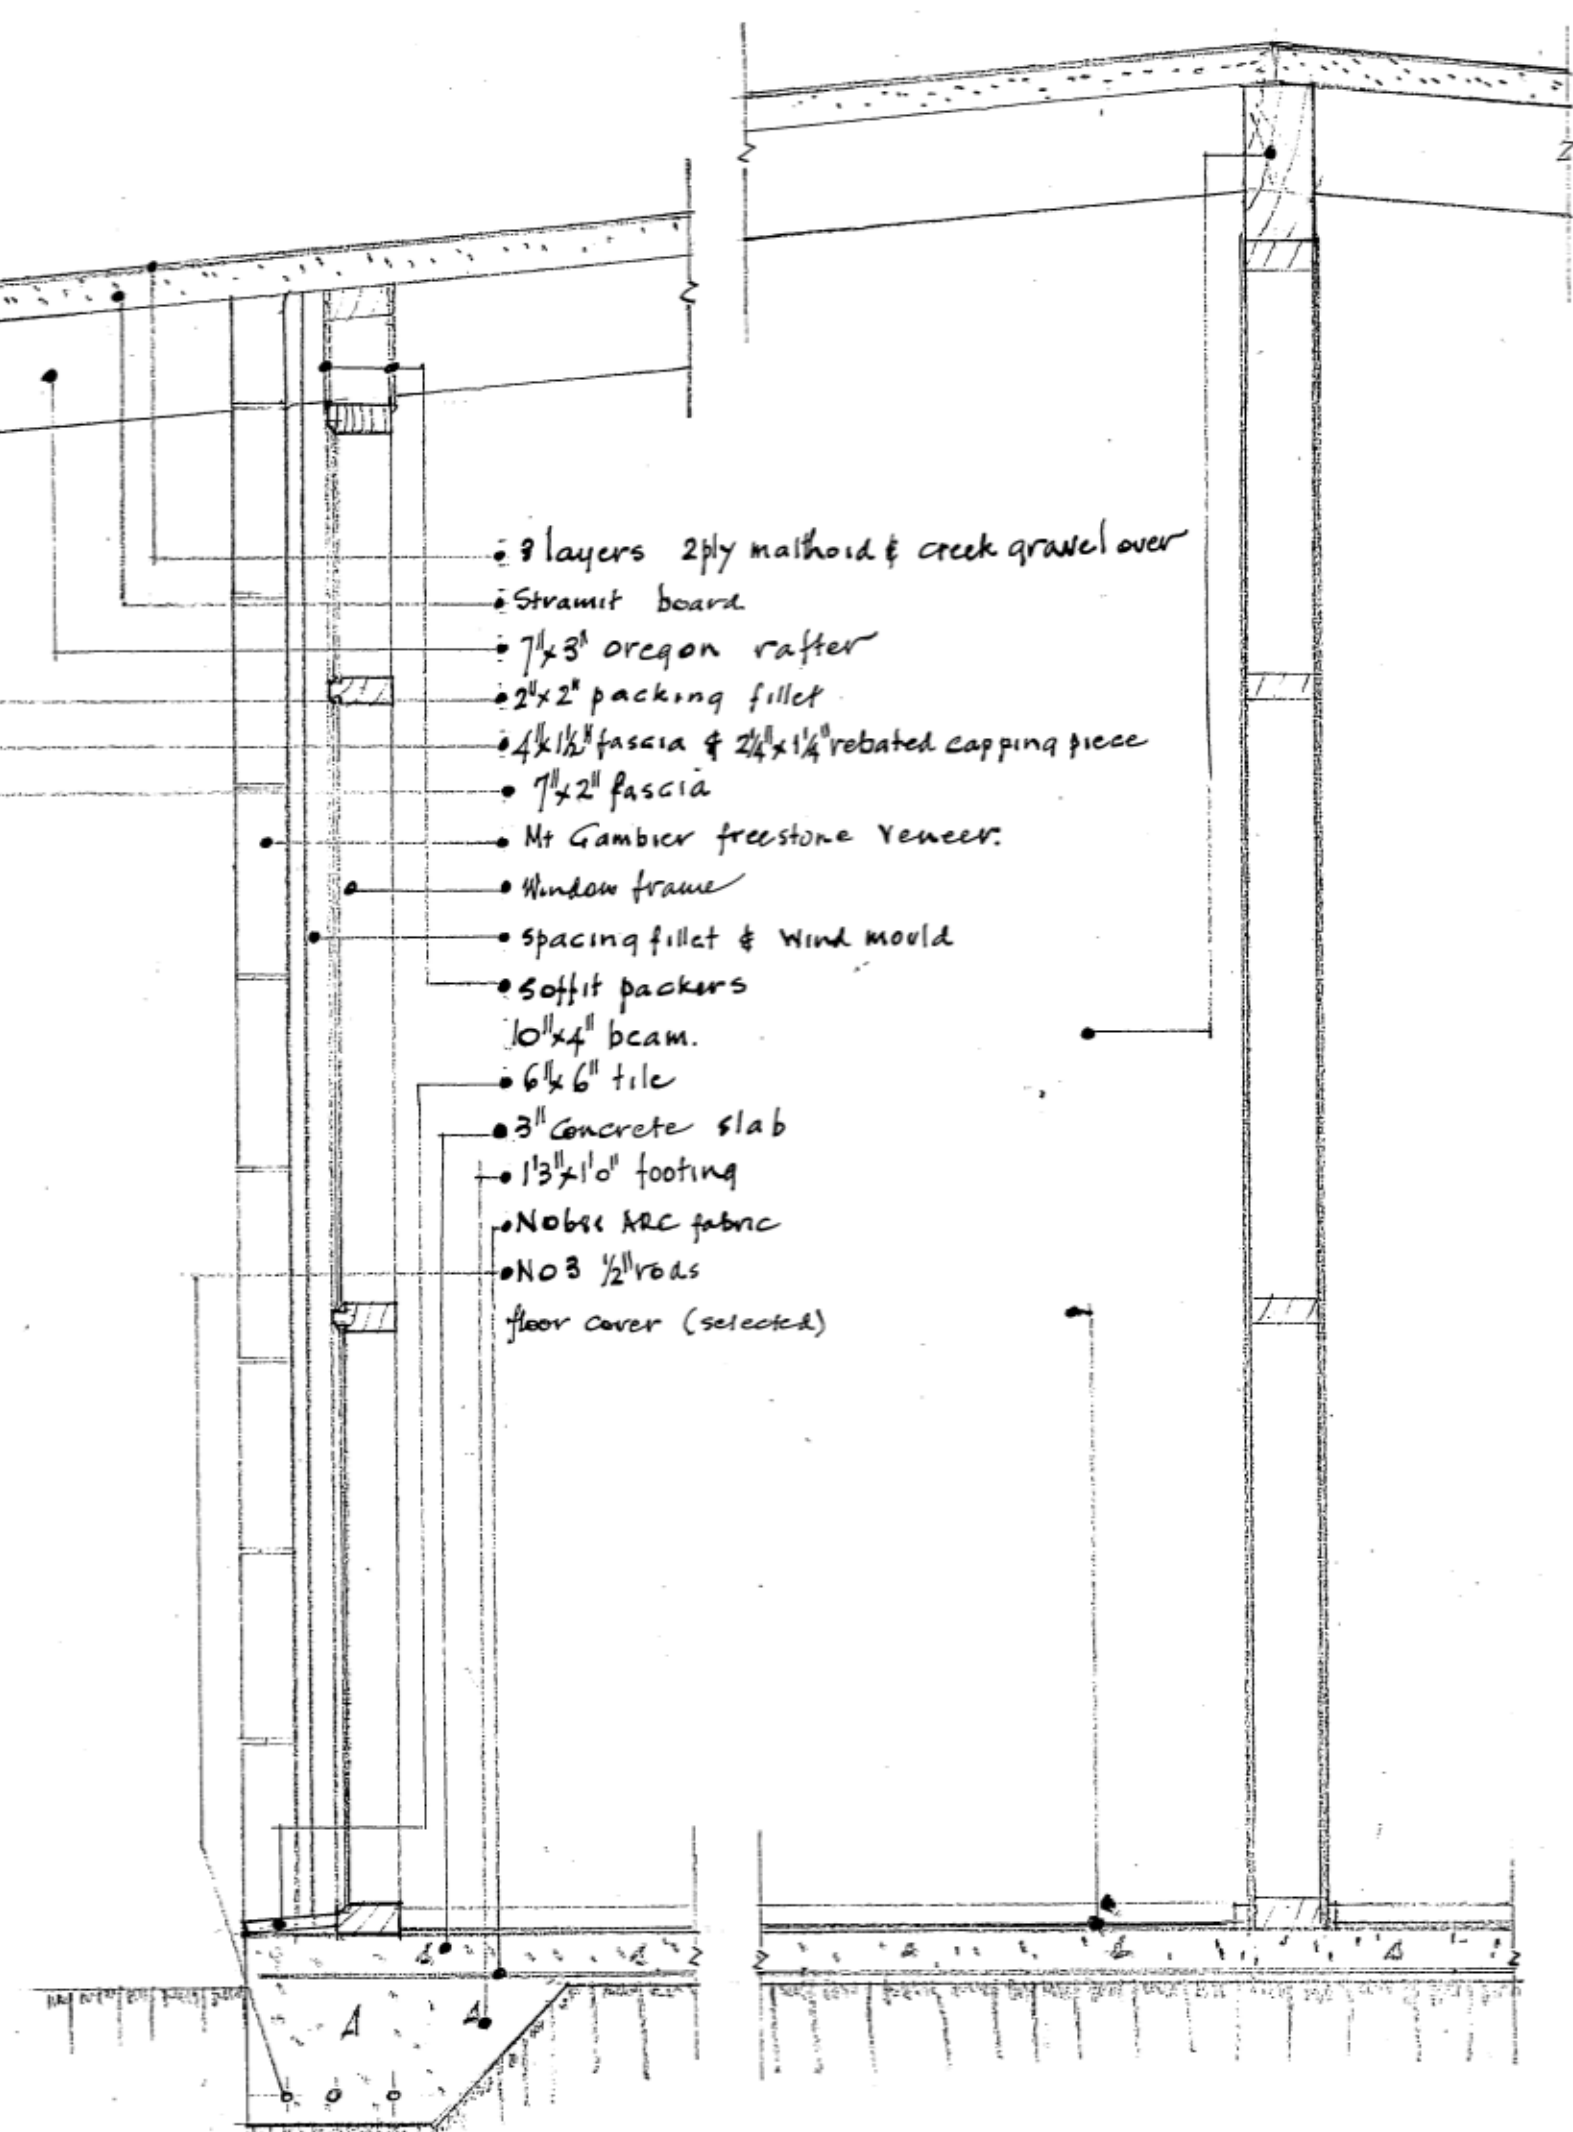 3 layers 2ply malthoid & creek gravel over
Stramit board
7"x3" oregon rafter
2"x2" packing fillet
4"x1½" fascia & 2¼"x1¼" rebated capping piece
7"x2" fascia
Mt Gambier freestone veneer.
Window frame
spacing fillet & wind mould
soffit packers
10"x4" beam.
6"x6" tile
3" concrete slab
1'3"x1'0" footing
ARC fabric
No 3 ½" rods
floor cover (selected)